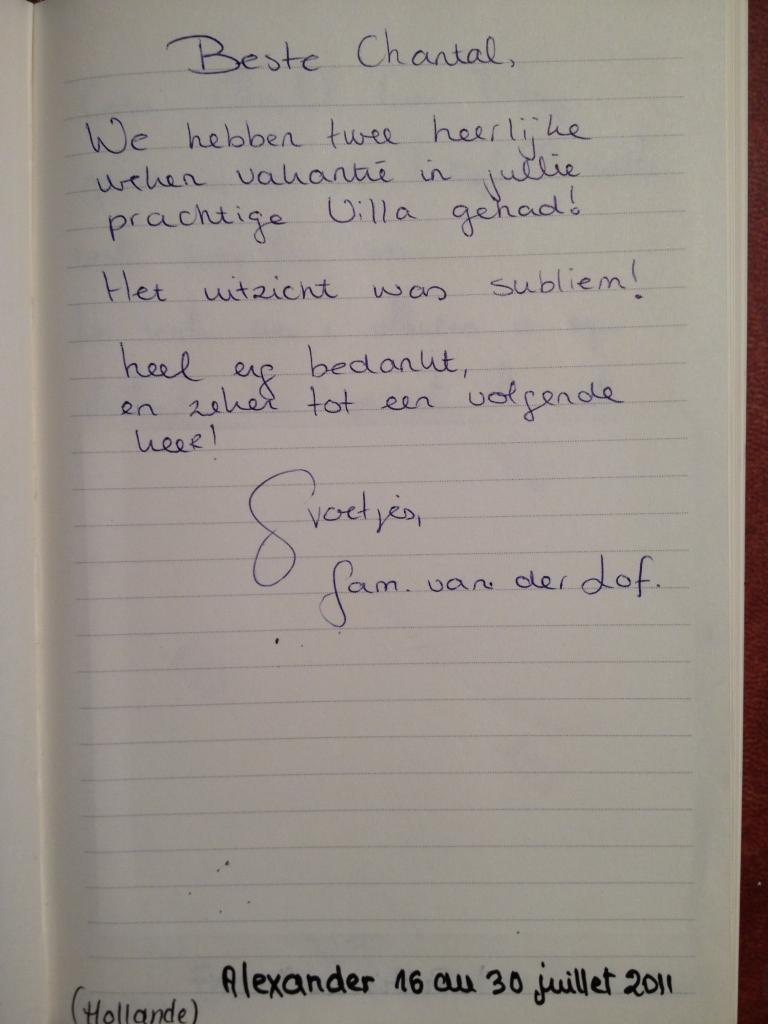 Beste Chantal,
We hebben twee heerlijke
weken vakantie in jullie
prachtige Villa gehad!
Het uitzicht was subliem!
heel erg bedankt,
en zeker tot een volgende
keer!
Groetjes,
fam. van der Lof.
Alexander 16 au 30 juillet 2011
(Hollande)